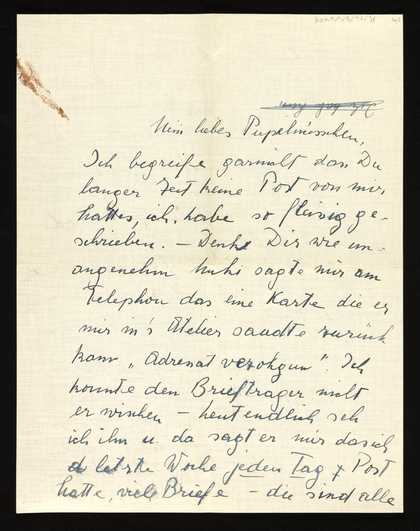 Mein liebes Pupelmisschen,
Ich begreife garnicht das Du
langer Zeit keine Post von mir
hattes, ich habe so fleissig ge-
schrieben. – Denke Dir wie un-
angenehm Muki sagte mir am
Telephon das eine Karte die er
mir in's Atelier sandte zurück
kam „Adresat verzohgen". Ich
konnte den Briefträger nicht
erwischen – heut endlich seh
ich ihn u. da sagt er mir das ich
letzte Woche jeden Tag Post
hatte, viele Briefe – die sind alle